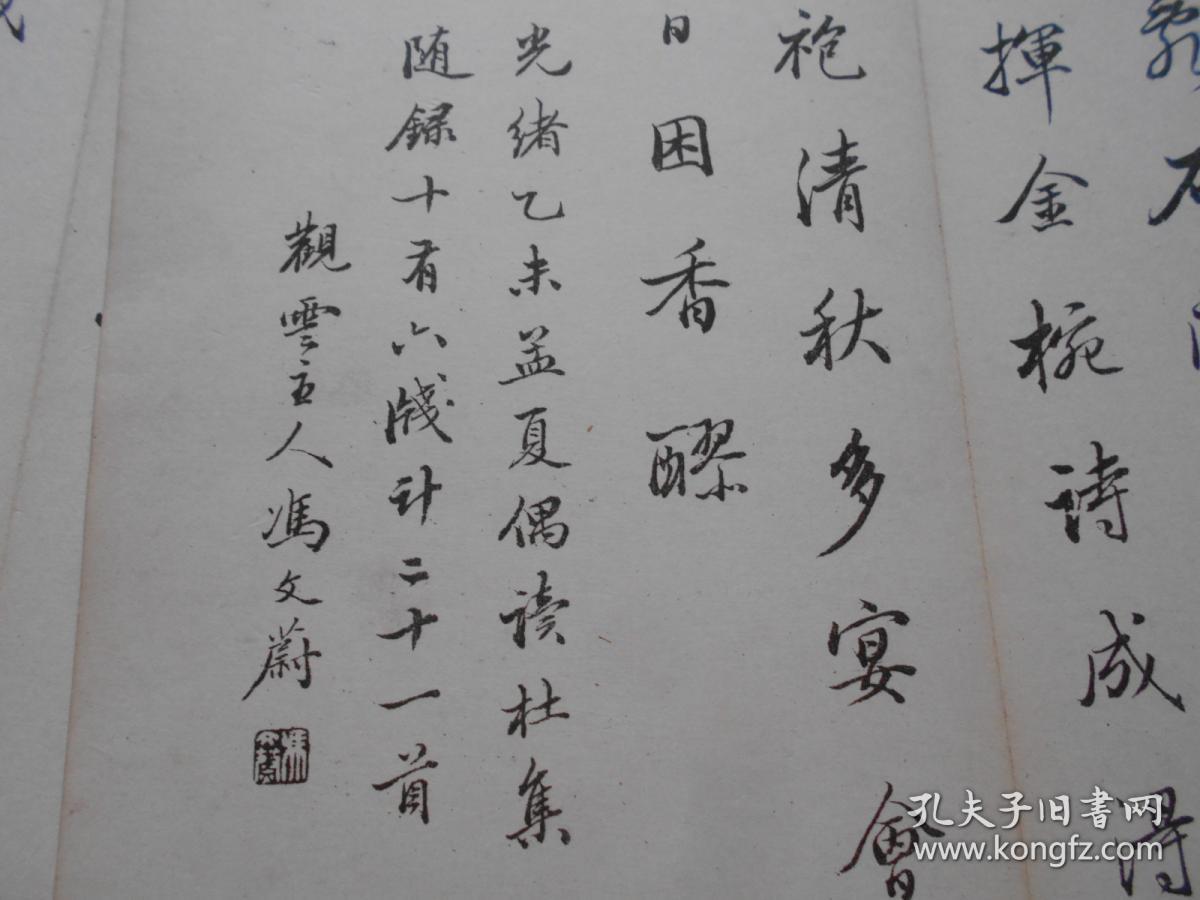 石
揮金椀诗成得
袍清秋多宴會
日困香醪
光绪乙未孟夏偶读杜集
随録十有六牋计二十一首
觀雲主人馮文蔚
孔夫子旧书网
www.kongfz.com